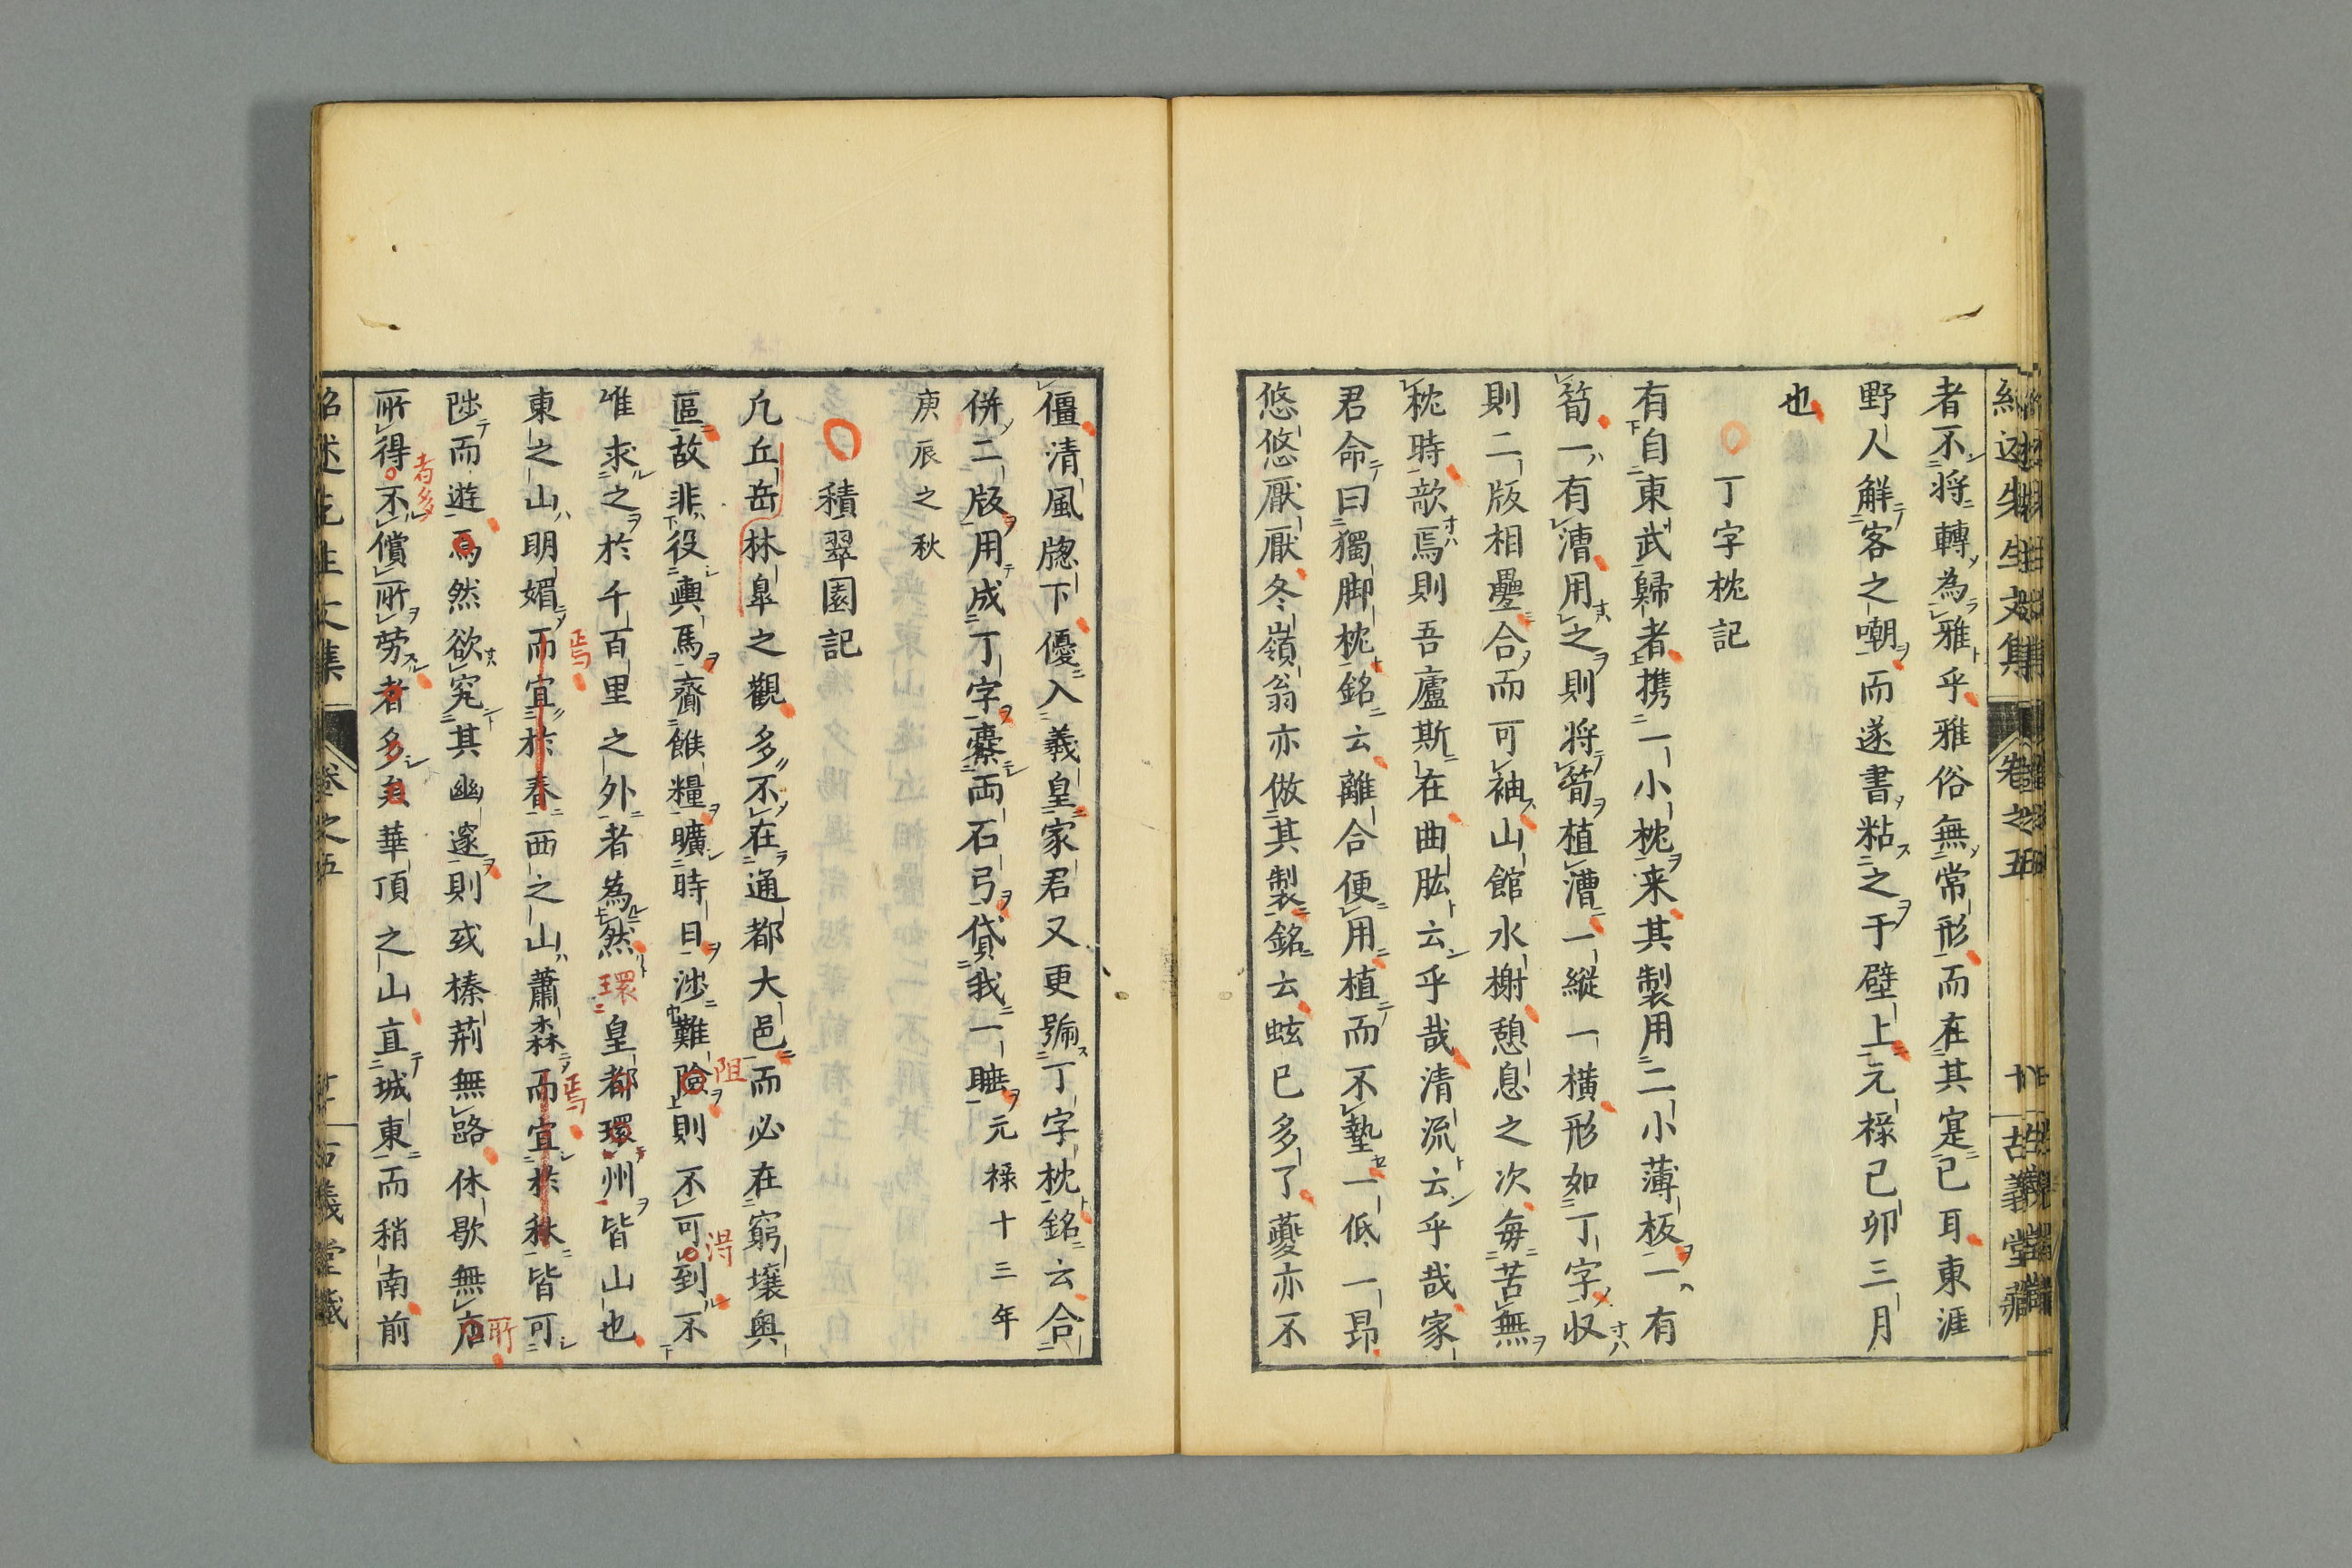 者不將轉為雅乎雅俗無常形而在其寔已耳東涯
野人解客之嘲而遂書粘之于壁上元祿己卯三月
也
丁字枕記
有自東武歸者携一小枕来其製用二小薄板一有
筍一有漕用之則將筍植漕一縱一橫形如丁字収
則二版相疊合而可袖山館水榭憩息之次每苦無
枕時欹焉則吾廬斯在曲肱云乎哉清流云乎哉家
君命曰獨脚枕銘云離合便用植而不墊一低一昂
悠悠厭厭冬嶺翁亦倣其製銘云蚿已多了夔亦不
僵清風牕下優入義皇家君又更號丁字枕銘云合
併二版用成丁字橐両石弓貸我一睡元祿十三年
庚辰之秋
積翠園記
凡丘岳林臯之觀多不在通都大邑而必在窮壤奥
區故非役輿馬齎餱糧曠時日涉難險則不可到不
阻
得
唯求之於千百里之外者為然環皇都環州皆山也
東之山明媚而宜於春西之山蕭森而宜於秋皆可
焉
焉
陟而遊焉然欲究其幽邃則或榛荊無路休歇無店
所
所得不償所勞者多矣華頂之山直城東而稍南前
者多
紹述先生文集
卷之五
古義堂藏